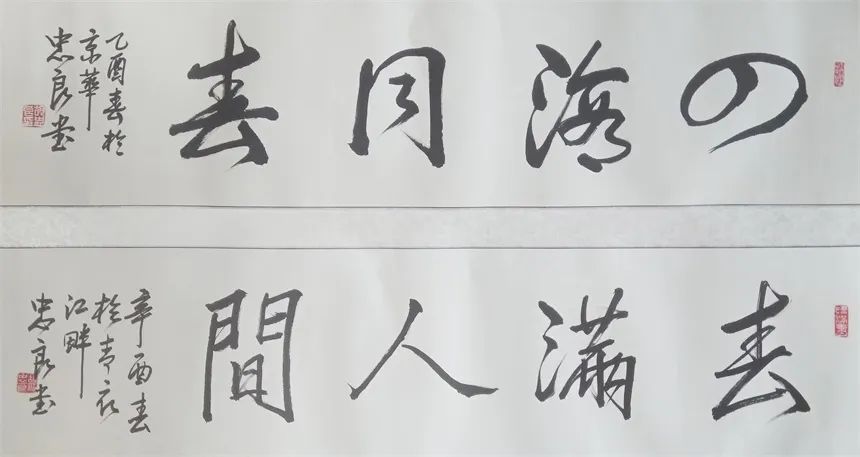 四海同春
乙酉春於
京華
忠良书
春滿人間
辛酉春
於青衣
江畔
忠良书